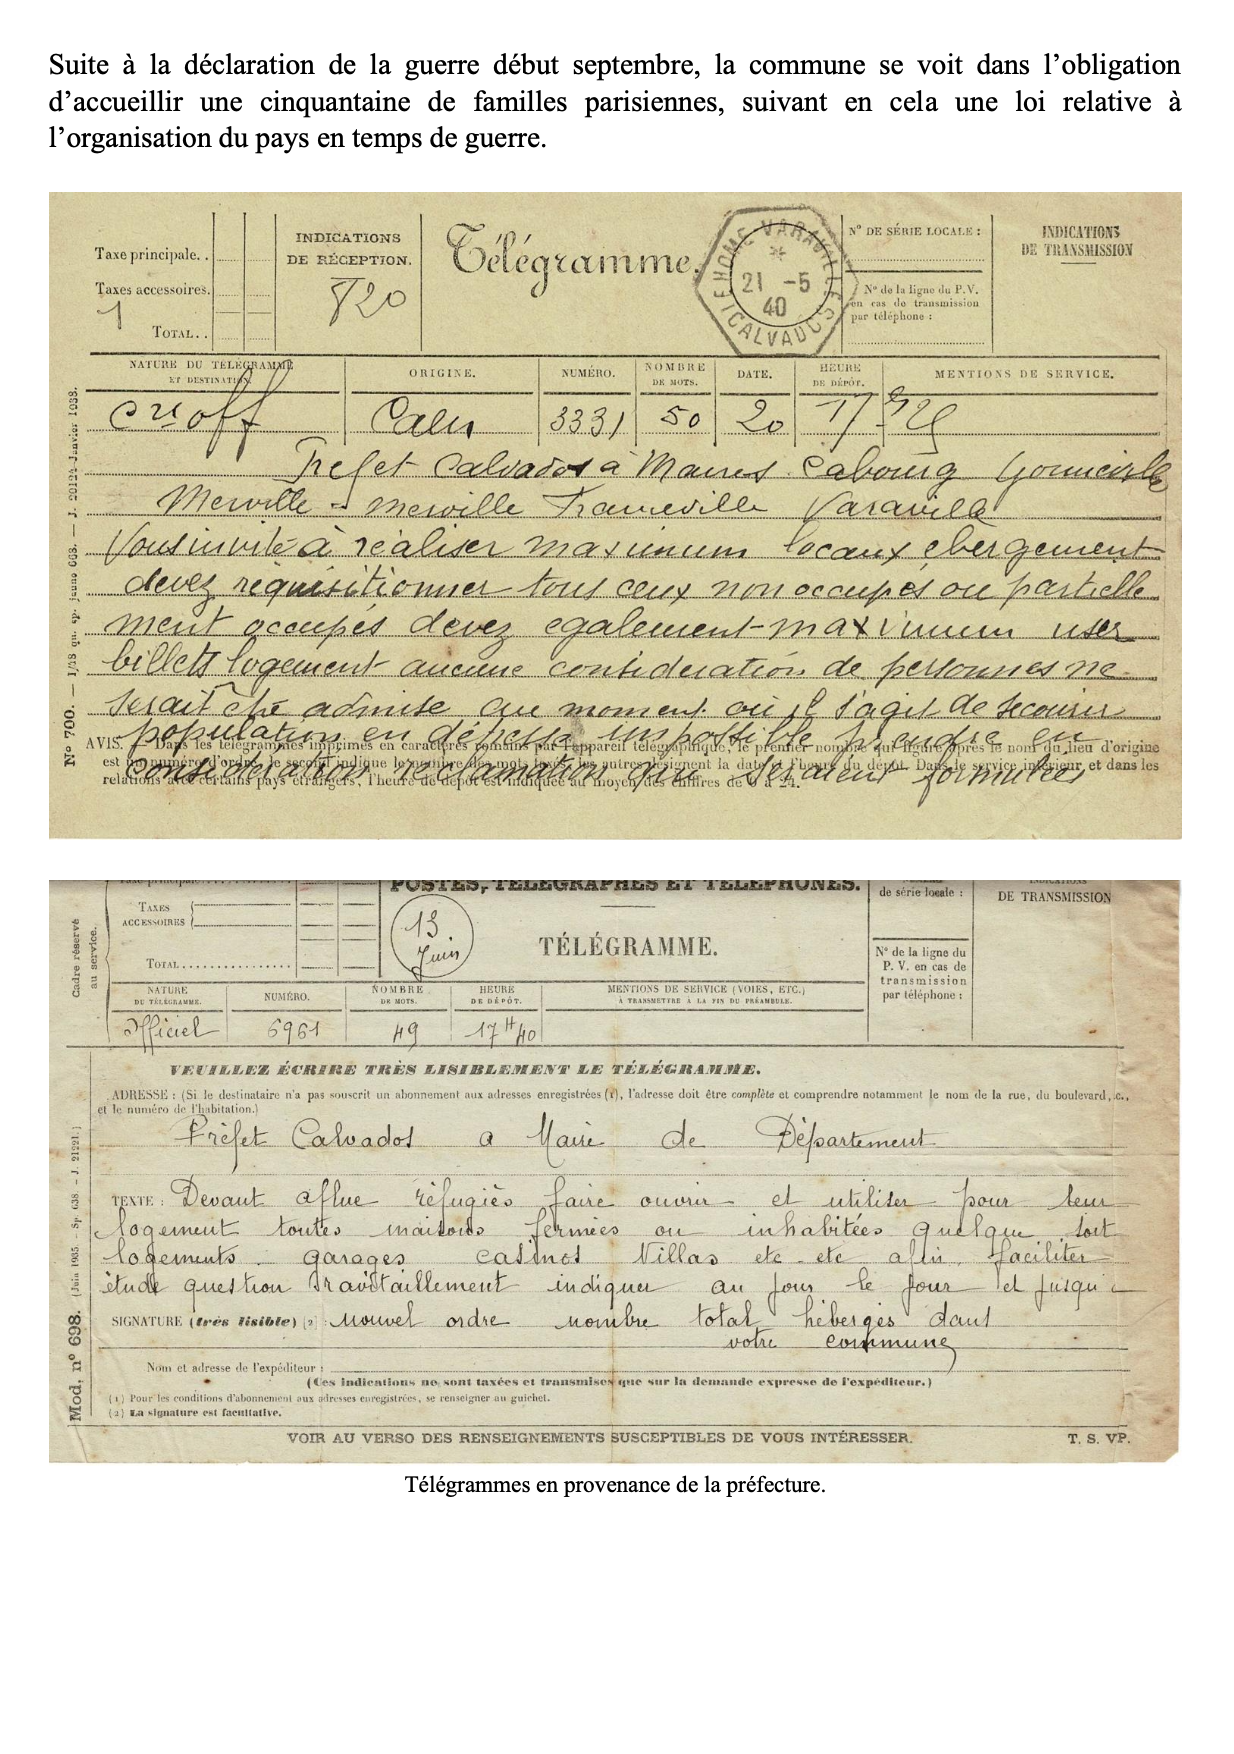 Suite à la déclaration de la guerre début septembre, la commune se voit dans l’obligation
d’accueillir une cinquantaine de familles parisiennes, suivant en cela une loi relative à
l’organisation du pays en temps de guerre.
Taxe principale. .
Taxes accessoires.
1
TOTAL. .
INDICATIONS
DE RÉCEPTION.
820
Télégramme.
HOME VARAVILLE
21 -5
40
CALVADOS
N° DE SÉRIE LOCALE :
N° de la ligne du P.V.
en cas de transmission
par téléphone :
INDICATIONS
DE TRANSMISSION
NATURE DU TÉLÉGRAMME
ET DESTINATION.
ORIGINE.
NUMÉRO.
NOMBRE
DE MOTS.
DATE.
HEURE
DE DÉPÔT.
MENTIONS DE SERVICE.
off Caen 3331 50 20 17
Prefet Calvados à Maires Cabourg Gonneville
Merville - Merville Franceville Varaville
Vous invite à réaliser maximum locaux ebergement
devez requisitionner tous ceux non occupés ou partielle
ment occupés devez egalement maximum user
billets logement aucune consideration de personnes ne
serait être admise au moment où il s'agit de secourir
population en impossible prendre en
consideration réclamation qui seraient formulées
AVIS. — Dans les télégrammes imprimés en caractères romains par l'appareil télégraphique, le premier nombre qui figure après le nom du lieu d'origine
est un numéro d'ordre, le second indique le nombre des mots taxés, les autres désignent la date et l'heure du dépôt. Dans le service intérieur et dans les
relations avec certains pays étrangers, l'heure de dépôt est indiquée au moyen des chiffres de 0 à 24.
N° 700.
POSTES, TÉLÉGRAPHES ET TÉLÉPHONES.
Cadre réservé
au service.
TAXES
ACCESSOIRES
TOTAL
13
Juin
TÉLÉGRAMME.
de série locale :
N° de la ligne du
P. V. en cas de
transmission
par téléphone :
INDICATIONS
DE TRANSMISSION
NATURE
DU TÉLÉGRAMME.
NUMÉRO.
NOMBRE
DE MOTS.
HEURE
DE DÉPÔT.
MENTIONS DE SERVICE (VOIES, ETC.)
À TRANSMETTRE À LA FIN DU PRÉAMBULE.
Officiel 6961 49 17 H 40
VEUILLEZ ÉCRIRE TRÈS LISIBLEMENT LE TÉLÉGRAMME.
ADRESSE : (Si le destinataire n'a pas souscrit un abonnement aux adresses enregistrées (1), l'adresse doit être complète et comprendre notamment le nom de la rue, du boulevard, &c.,
et le numéro de l'habitation.)
Prèfet Calvados a Maire de Département
TEXTE : Devant aflue réfugiés faire ouvrir et utiliser pour leur
logement toutes maisons fermées ou inhabitées quelque soit
logements garages casinos Villas etc etc afin faciliter
étude question ravitaillement indiquer au jour le jour et jusqu'à
SIGNATURE (très lisible) (2) : nouvel ordre nombre total hébergés dans
votre commune
Nom et adresse de l'expéditeur :
(Ces indications ne sont taxées et transmises que sur la demande expresse de l'expéditeur.)
(1) Pour les conditions d'abonnement aux adresses enregistrées, se renseigner au guichet.
(2) La signature est facultative.
VOIR AU VERSO DES RENSEIGNEMENTS SUSCEPTIBLES DE VOUS INTÉRESSER.
T. S. VP.
Mod. n° 698. (Juin 1935. - Sp. 638 - J. 21221.)
Télégrammes en provenance de la préfecture.